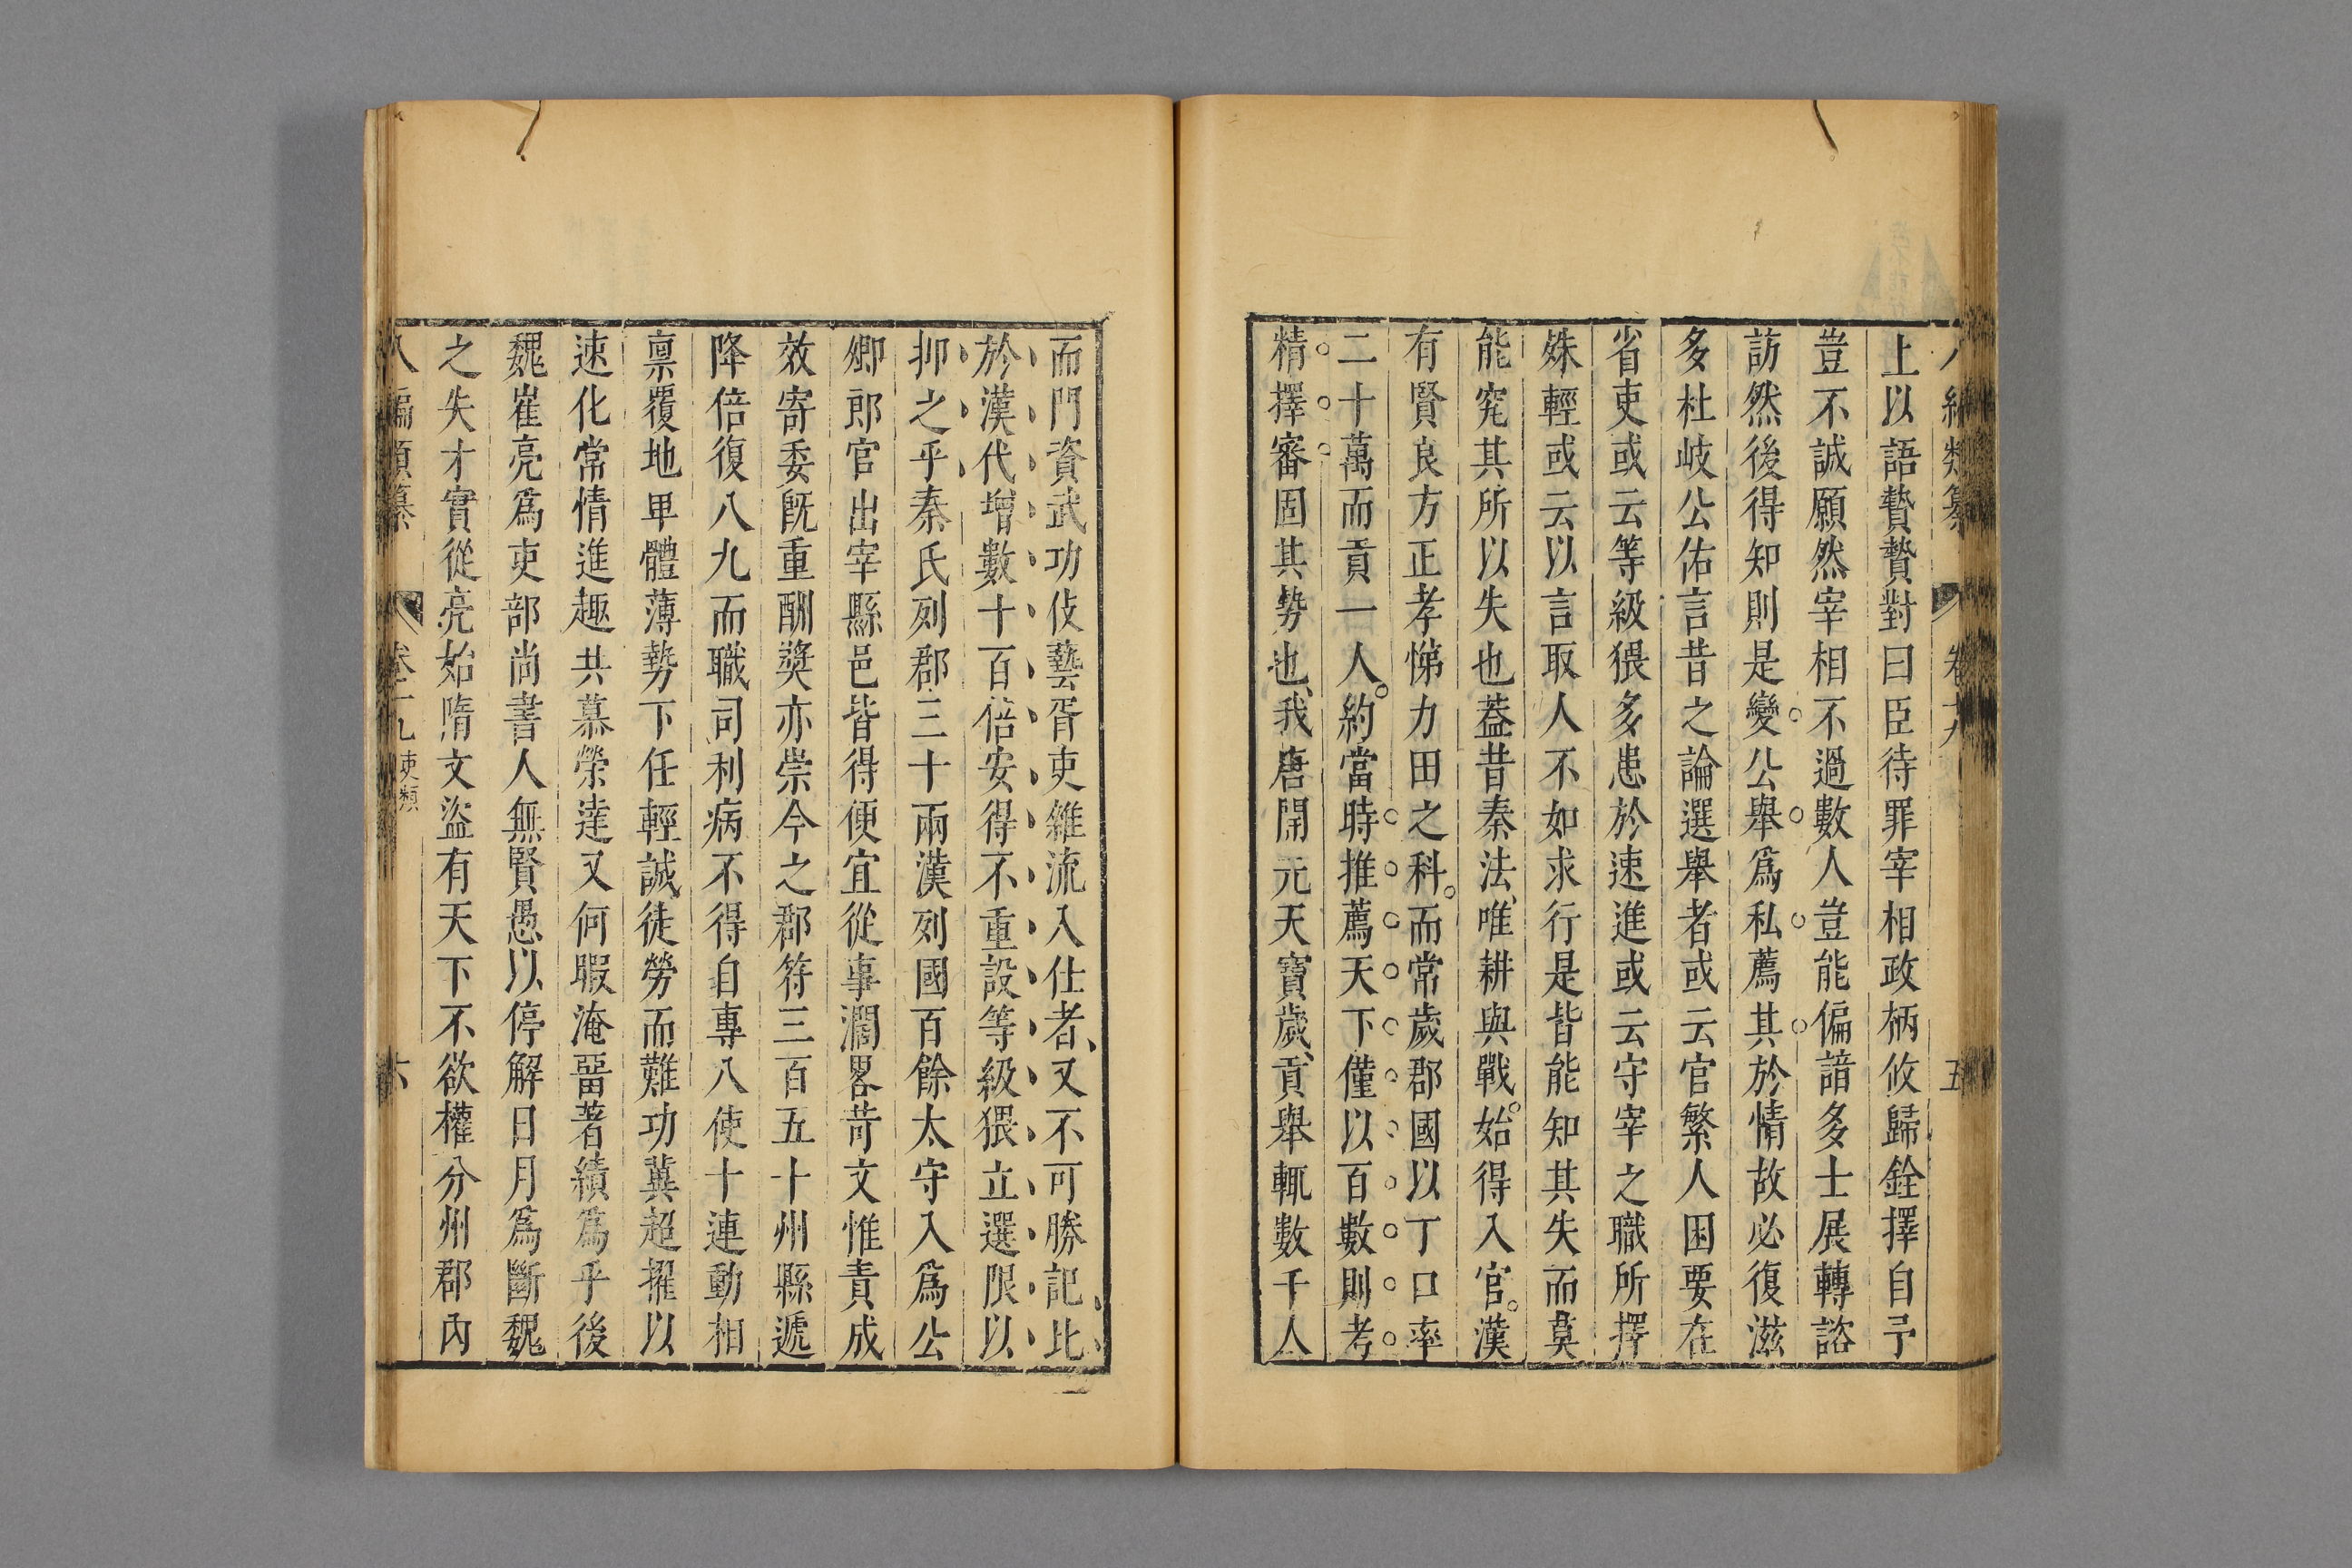 八編類纂 卷十九 五
上以語贄贄對曰臣待罪宰相政柄攸歸銓擇自予
豈不誠願然宰相不過數人豈能偏諳多士展轉諮
訪然後得知則是變公舉爲私薦其於情故必復滋
多杜岐公佑言昔之論選舉者或云官繁人困要在
省吏或云等級猥多患於速進或云守宰之職所擇
殊輕或云以言取人不如求行是皆能知其失而莫
能究其所以失也葢昔秦法唯耕與戰始得入官漢
有賢良方正孝悌力田之科而常歲郡國以丁口率
二十萬而貢一人約當時推薦天下僅以百數則考
精擇審固其勢也我唐開元天寶歲貢舉輒數千人
而門資武功伎藝胥吏雜流入仕者又不可勝記比
於漢代增數十百倍安得不重設等級猥立選限以
抑之乎秦氏列郡三十兩漢列國百餘太守入爲公
卿郎官出宰縣邑皆得便宜從事濶畧苛文惟責成
效寄委旣重酬奬亦崇今之郡符三百五十州縣遞
降倍復八九而職司利病不得自專八使十連動相
禀覆地卑體薄勢下任輕誠徒勞而難功冀超擢以
速化常情進趣共慕榮達又何暇淹畱著績爲乎後
魏崔亮爲吏部尚書人無賢愚以停解日月爲斷魏
之失才實從亮始隋文盜有天下不欲權分州郡內
八編類纂 卷十九 吏類 六